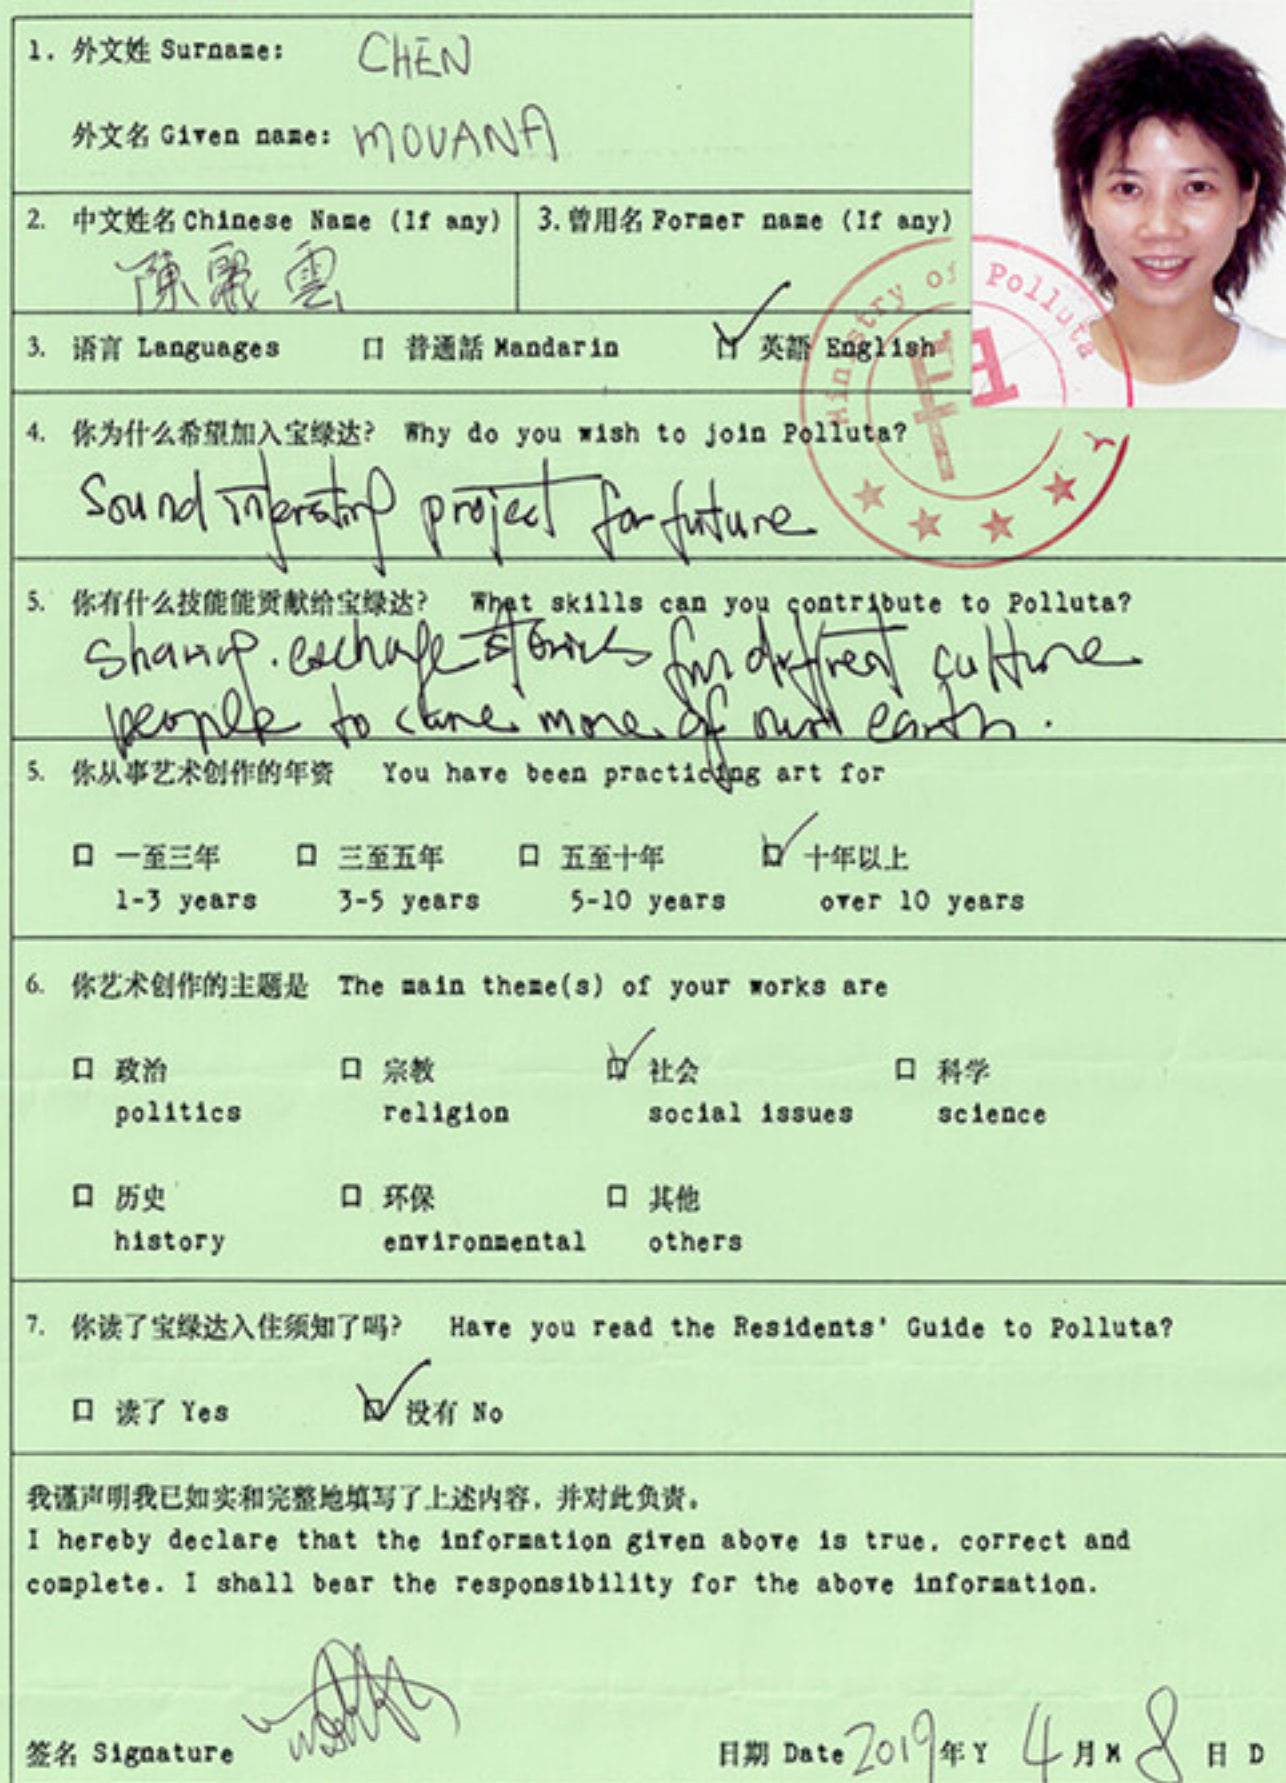 1. 外文姓 Surname: CHEN
外文名 Given name: MOVANA
2. 中文姓名 Chinese Name (If any)
陳麗雲
3. 曾用名 Former name (If any)
Ministry of Polluta
3. 语言 Languages 口 普通話 Mandarin 口 英語 English
4. 你为什么希望加入宝绿达? Why do you wish to join Polluta?
Sound intersting project for future
5. 你有什么技能能贡献给宝绿达? What skills can you contribute to Polluta?
Sharing. exchage stories for diffrent culture
people to care more of our earth.
5. 你从事艺术创作的年资 You have been practicing art for
口 一至三年 口 三至五年 口 五至十年 口 十年以上
1-3 years 3-5 years 5-10 years over 10 years
6. 你艺术创作的主题是 The main theme(s) of your works are
口 政治 口 宗教 口 社会 口 科学
politics religion social issues science
口 历史 口 环保 口 其他
history environmental others
7. 你读了宝绿达入住须知了吗? Have you read the Residents' Guide to Polluta?
口 读了 Yes 口 没有 No
我谨声明我已如实和完整地填写了上述内容，并对此负责。
I hereby declare that the information given above is true, correct and
complete. I shall bear the responsibility for the above information.
签名 Signature 日期 Date 2019 年 Y 4 月 M 8 日 D